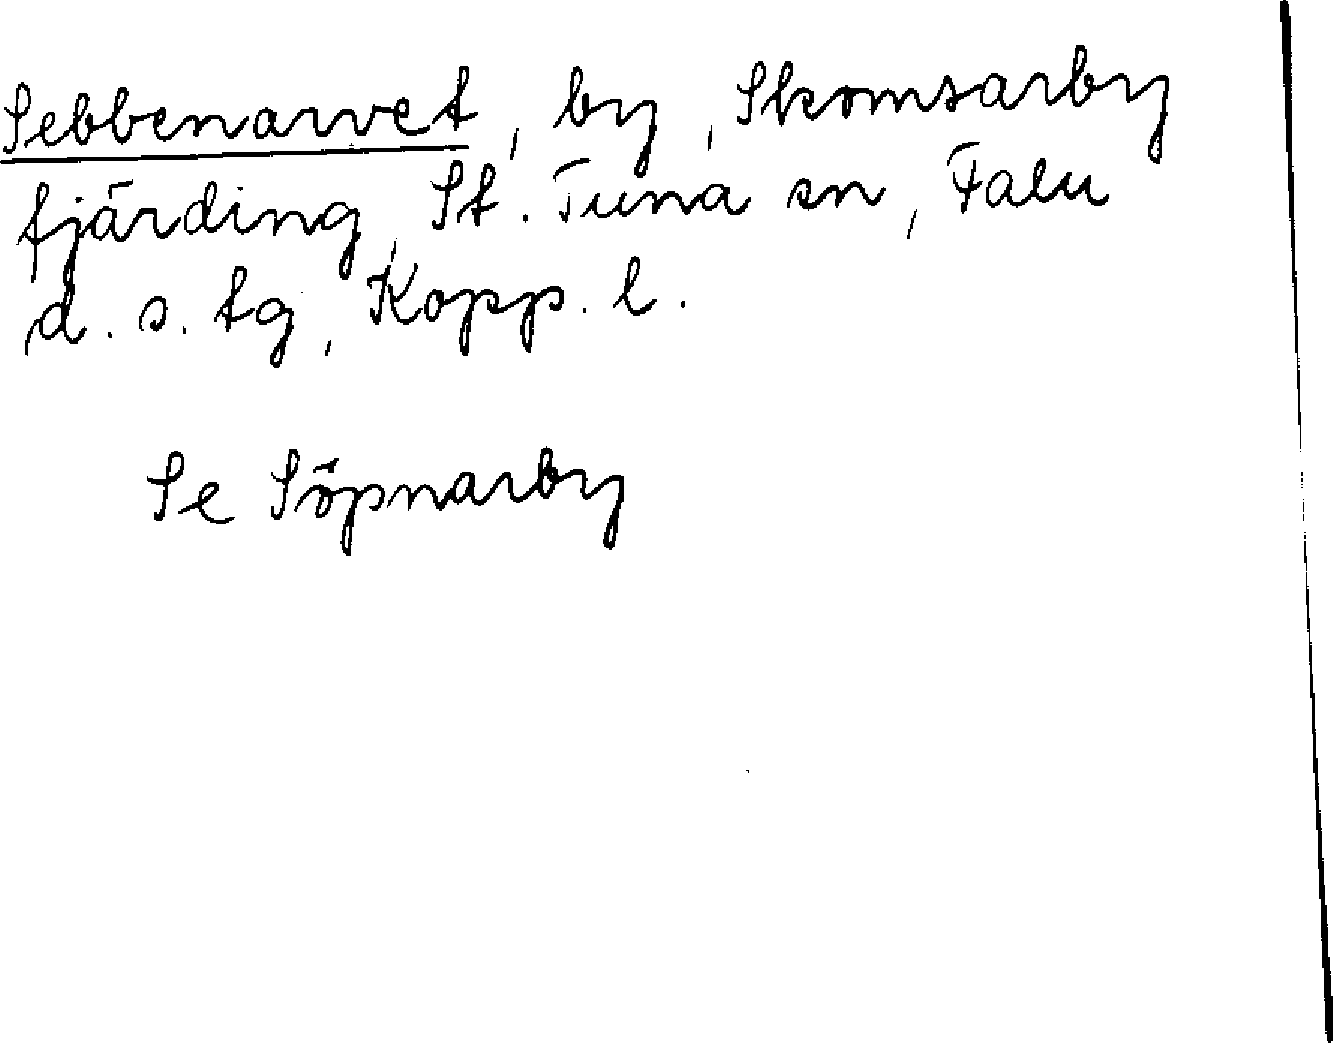 Sebbenarvet, by, Skomsarby
fjärding, St. Tuna sn, Falu
d. s. tg, Kopp. l.
Se Söpnarby